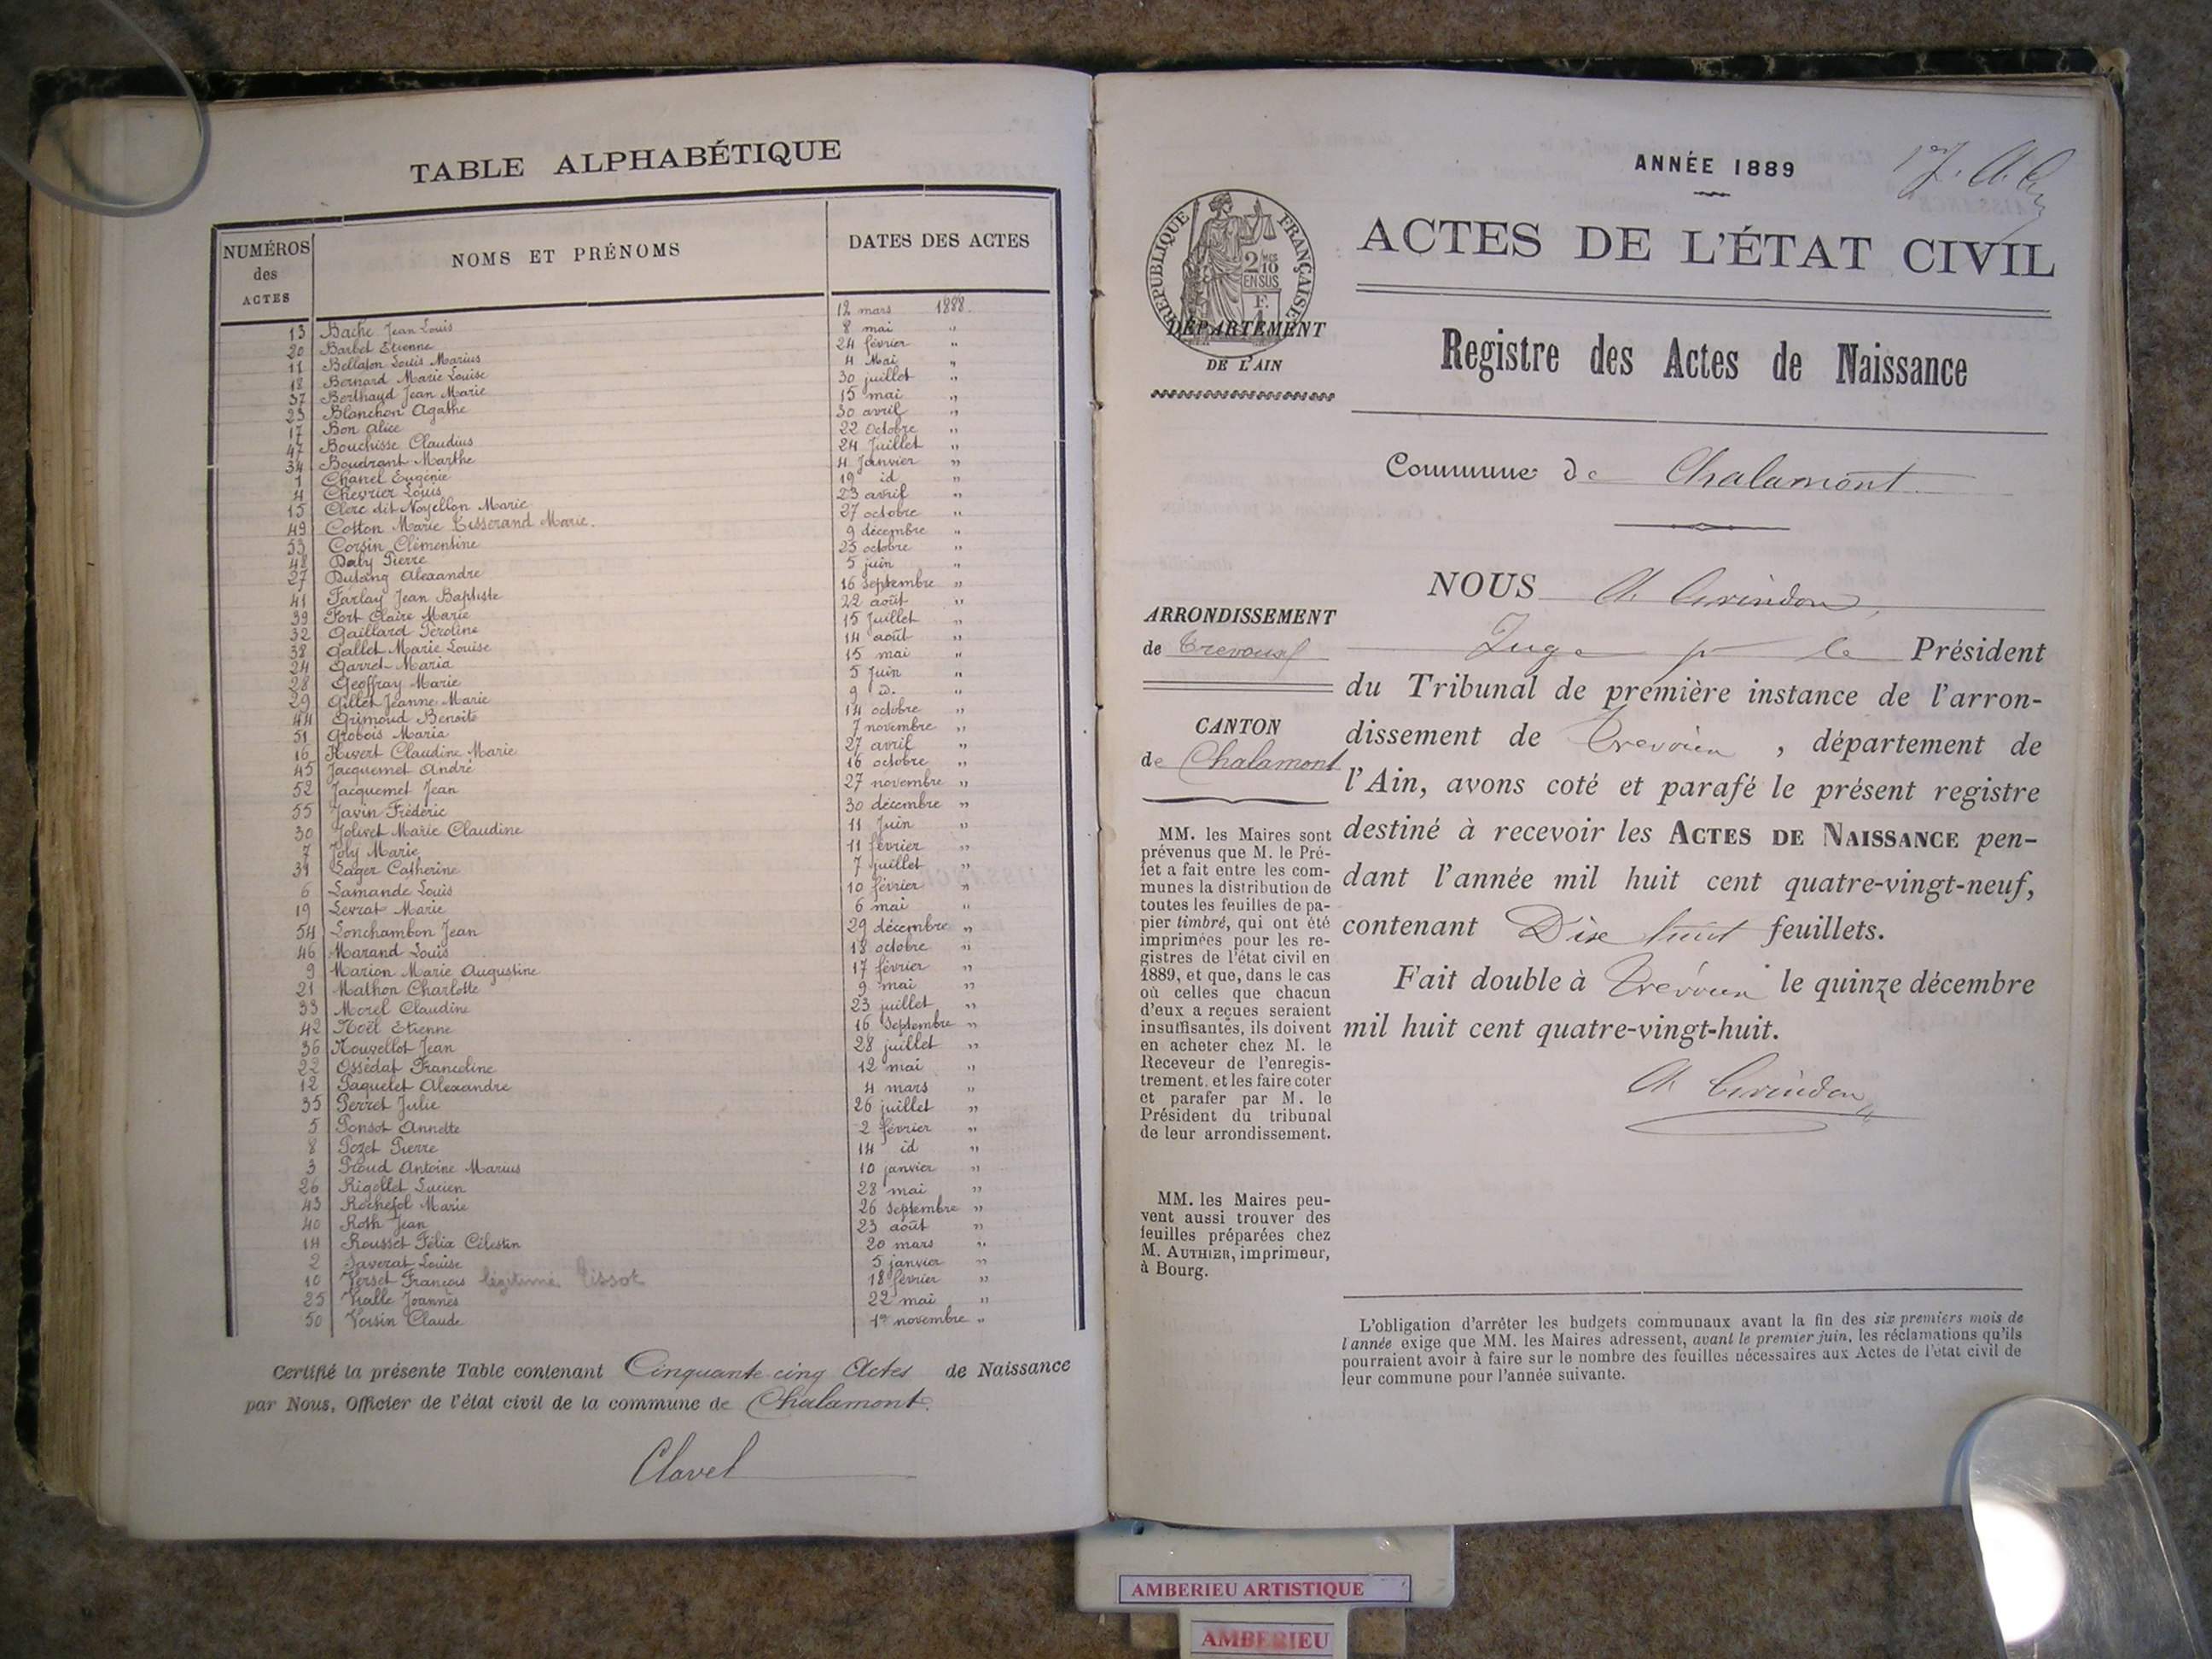 TABLE ALPHABÉTIQUE
NUMÉROS des ACTES
NOMS ET PRÉNOMS
DATES DES ACTES
13 Bache Jean Louis 12 mars 1888.
20 Barbet Etienne 8 mai "
11 Bellaton Louis Marius 24 février "
18 Bernard Marie Louise 4 Mai "
37 Berthaud Jean Marie 30 juillet "
23 Blanchon Agathe 15 mai "
17 Bon Alice 30 avril "
47 Bouchisse Claudius 22 Octobre "
34 Boudrant Marthe 24 Juillet "
1 Chanel Eugénie 4 Janvier "
4 Chevrier Louis 19 id "
15 Clerc dit Noyellon Marie 23 avril "
49 Cotton Marie Tisserand Marie. 27 octobre "
53 Corsin Clémentine 9 décembre "
48 Daby Pierre 25 octobre "
27 Dulang Alexandre 5 juin "
41 Farlay Jean Baptiste 16 Septembre "
39 Fort Claire Marie 22 août "
32 Gaillard Péroline 15 Juillet "
38 Gallet Marie Louise 14 août "
24 Garret Maria 15 mai "
28 Geoffray Marie 5 Juin "
29 Gillet Jeanne Marie 9 id. "
44 Grimoud Benoite 14 octobre "
51 Grobois Maria 7 novembre "
16 Huvert Claudine Marie 27 avril "
45 Jacquemet André 16 octobre "
52 Jacquemet Jean 27 novembre "
55 Javin Frédéric 30 décembre "
30 Jolivet Marie Claudine 11 Juin "
7 Joly Marie 11 février "
31 Lager Catherine 7 juillet "
6 Lamande Louis 10 février "
19 Levrat Marie 6 mai "
54 Lonchambon Jean 29 décembre "
46 Marand Louis 18 octobre "
9 Marion Marie Augustine 17 février "
21 Mathon Charlotte 9 mai "
33 Morel Claudine 23 juillet "
42 Noël Etienne 16 Septembre "
36 Nouvellot Jean 28 juillet "
22 Ossédat Franceline 12 mai "
12 Paquelet Alexandre 4 mars "
35 Perret Julie 26 juillet "
5 Ponsot Annette 2 février "
8 Pozet Pierre 14 id "
3 Proud Antoine Marius 10 janvier "
26 Rigollet Lucien 28 mai "
43 Rochefol Marie 26 Septembre "
40 Roth Jean 23 août "
14 Rousset Félix Célestin 20 mars "
2 Saverat Louise 5 janvier "
10 Verset François légitimé Tissot 18 février "
25 Vialle Joannès 22 mai "
50 Voisin Claude 1er novembre "
Certifié la présente Table contenant Cinquante cinq Actes de Naissance
par Nous, Officier de l'état civil de la commune de Chalamont.
Clavel
ANNÉE 1889
RÉPUBLIQUE FRANÇAISE
2/10
EN SUS
DÉPARTEMENT
DE L'AIN
ACTES DE L'ÉTAT CIVIL
Registre des Actes de Naissance
Commune de Chalamont
ARRONDISSEMENT
de Trevoux
CANTON
de Chalamont
MM. les Maires sont
prévenus que M. le Pré-
fet a fait entre les com-
munes la distribution de
toutes les feuilles de pa-
pier timbré, qui ont été
imprimées pour les re-
gistres de l'état civil en
1889, et que, dans le cas
où celles que chacun
d'eux a reçues seraient
insuffisantes, ils doivent
en acheter chez M. le
Receveur de l'enregis-
trement, et les faire coter
et parafer par M. le
Président du tribunal
de leur arrondissement.
MM. les Maires peu-
vent aussi trouver des
feuilles préparées chez
M. AUTHIER, imprimeur,
à Bourg.
NOUS
Juge pr le Président
du Tribunal de première instance de l'arron-
dissement de Trevoux , département de
l'Ain, avons coté et parafé le présent registre
destiné à recevoir les ACTES DE NAISSANCE pen-
dant l'année mil huit cent quatre-vingt-neuf,
contenant Dix huit feuillets.
Fait double à Trévoux le quinze décembre
mil huit cent quatre-vingt-huit.
L'obligation d'arrêter les budgets communaux avant la fin des six premiers mois de
l'année exige que MM. les Maires adressent, avant le premier juin, les réclamations qu'ils
pourraient avoir à faire sur le nombre des feuilles nécessaires aux Actes de l'état civil de
leur commune pour l'année suivante.
AMBERIEU ARTISTIQUE
AMBERIEU